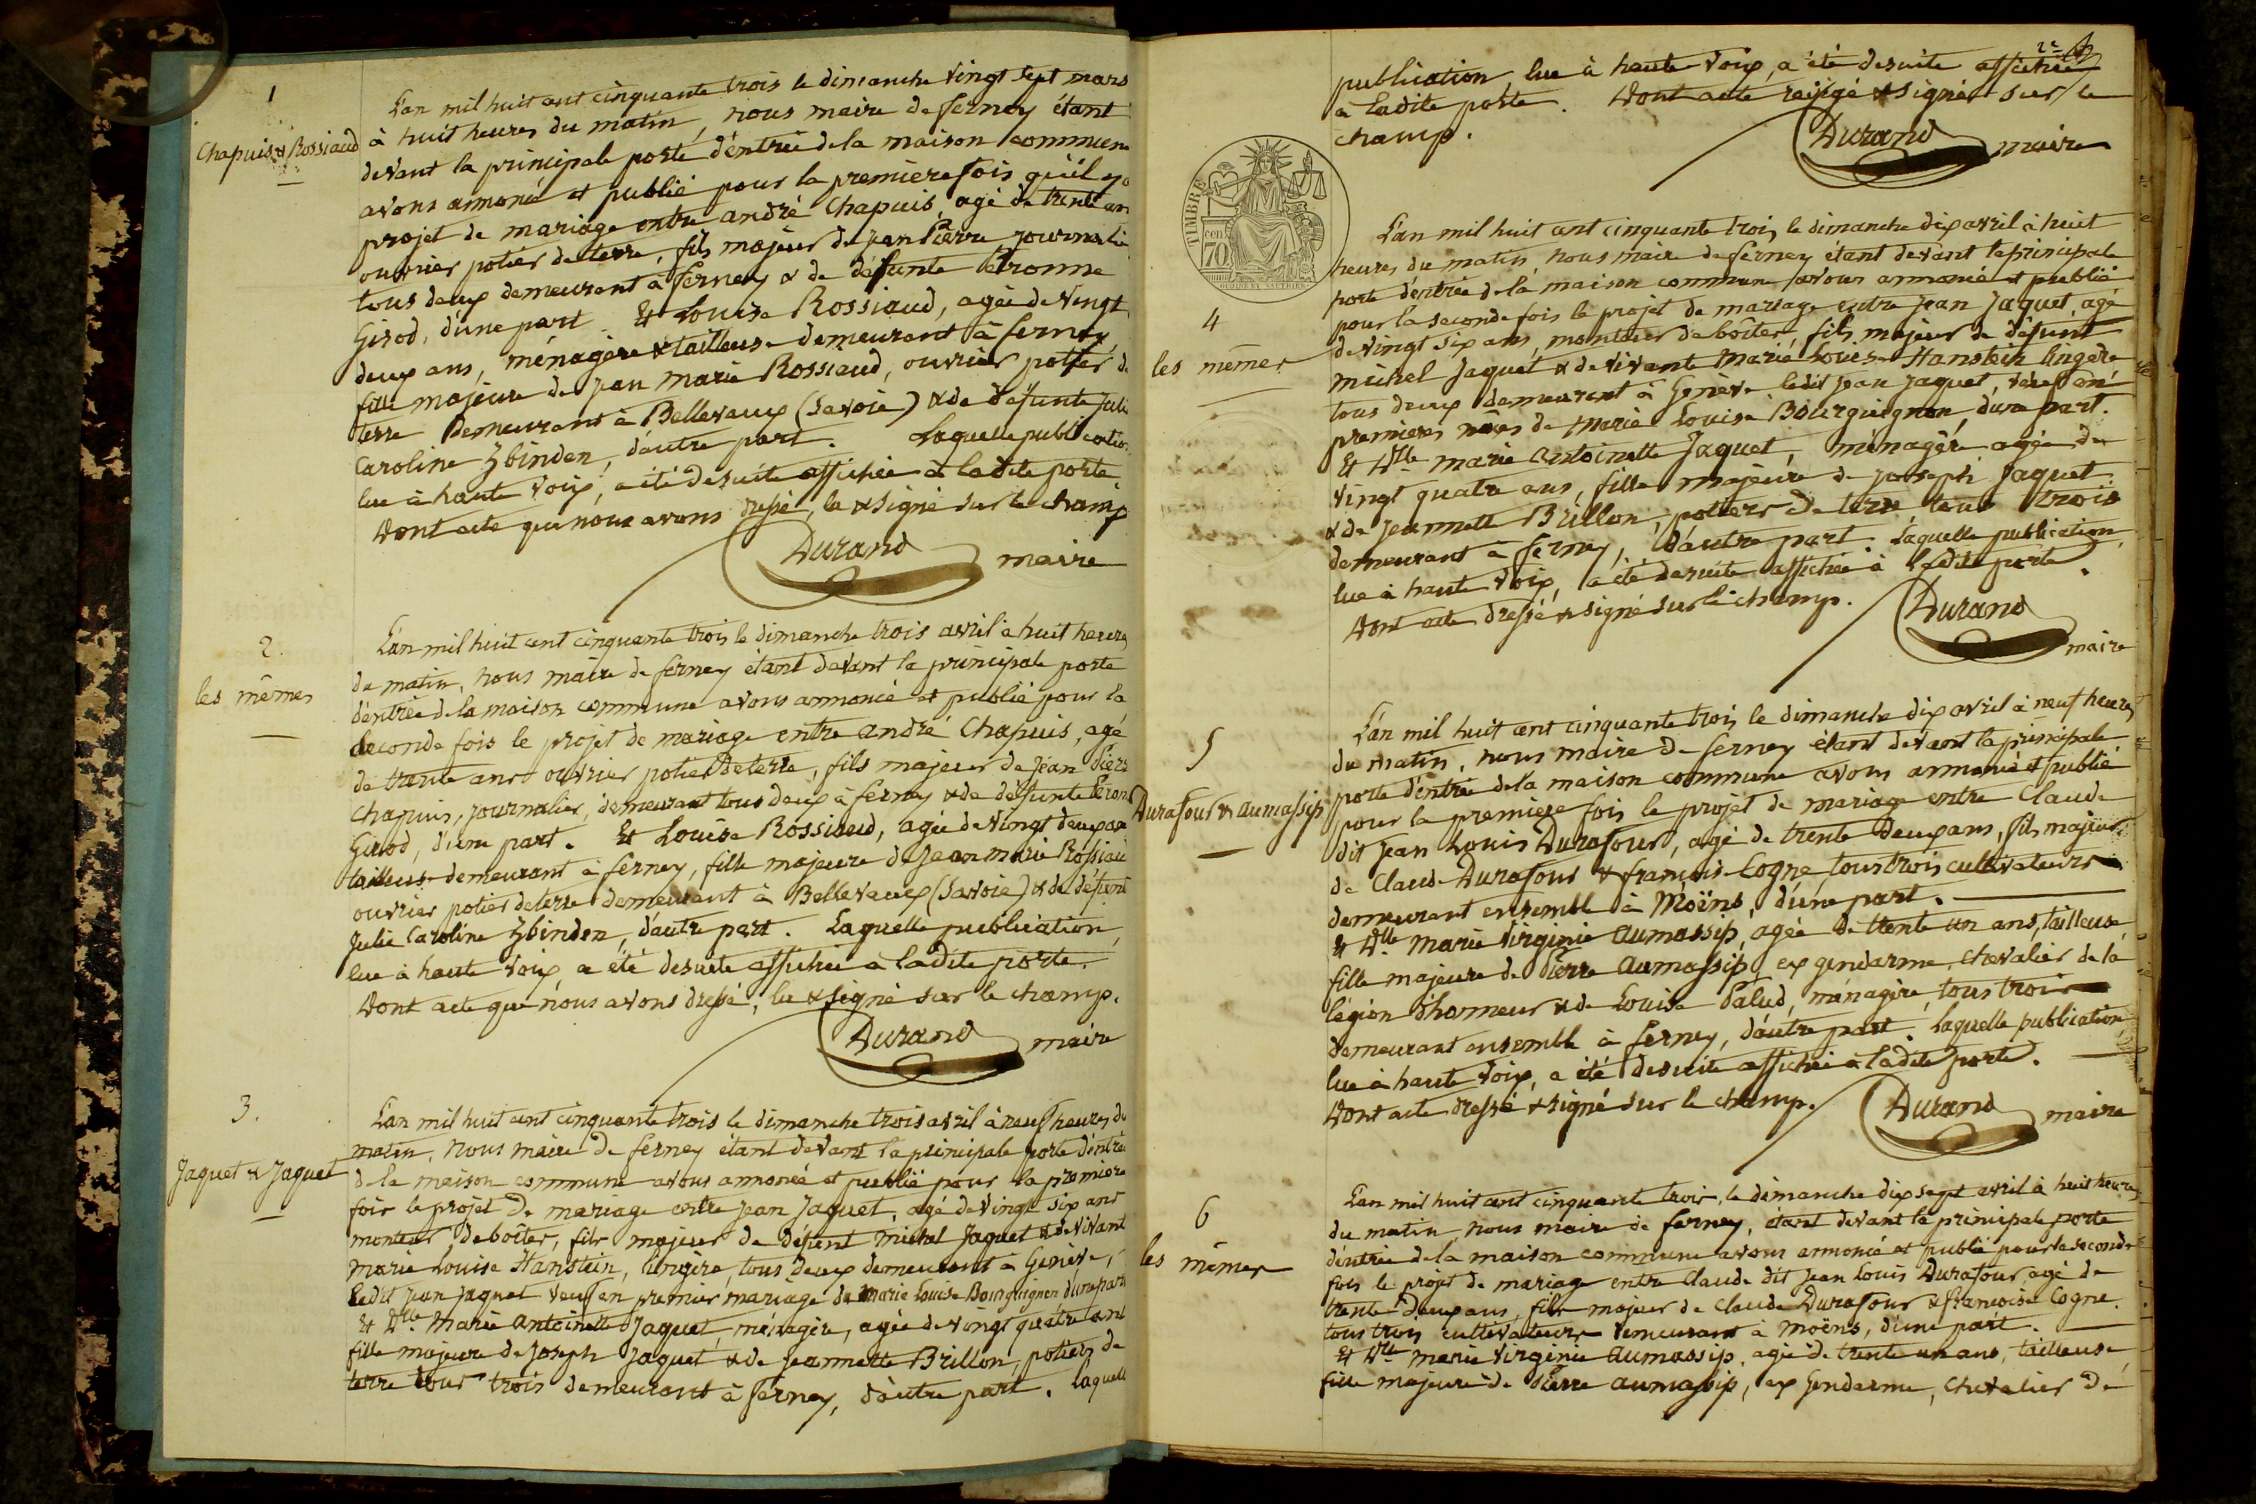 1
Chapuis & Rossiaud
L'an mil huit cent cinquante trois le dimanche vingt sept mars
à huit heures du matin, nous maire de ferney étant
devant la principale porte d'entrée de la maison commune
avons annoncé et publié pour la premiere fois qu'il y a
projet de mariage entre andré Chapuis, agé de trente an
ouvrier potier de terre, fils majeur de Jean Pierre journalie
tous deux demeurant à ferney & de défunte Péronne
Girod, d'une part. Et Louise Rossiaud, agée de vingt
deux ans, ménagère & tailleuse demeurant à ferney,
fille majeure de Jean Marie Rossiaud, ouvrier potier de
terre demeurant à Bellevaux (Savoie) & de défunte Julie
Caroline Zbinden, d'autre part. Laquelle publication
lue à haute voix, a été desuite affichée à ladite porte
Dont acte que nous avons dressé, lu & signé sur le champ
Durand maire
2.
les mêmes
L'an mil huit cent cinquante trois le dimanche trois avril à huit heures
du matin, nous maire de ferney étant devant la principale porte
d'entrée de la maison commune avons annoncé et publié pour la
seconde fois le projet de mariage entre andré Chapuis, agé
de trente ans ouvrier potier de terre, fils majeur de Jean Pierre
Chapuis, journalier, demeurant tous deux à ferney & de défunte Péronne
Girod, d'une part. Et Louise Rossiaud, agée de vingt deux ans
tailleuse demeurant à ferney, fille majeure de Jean marie Rossiaud
ouvrier potier de terre demeurant à Bellevaux (Savoie) & de défunte
Julie Caroline Zbinden, d'autre part. Laquelle publication,
lue à haute voix, a été desuite affichée à ladite porte.
Dont acte que nous avons dressé, lu & signé sur le champ.
Durand maire
3.
Jaquet & Jaquet
L'an mil huit cent cinquante trois le dimanche trois avril à neuf heures du
matin, nous maire de ferney étant devant la principale porte d'entrée
de la maison commune avons annoncé et publié pour la premiere
fois le projet de mariage entre Jean Jaquet, agé de vingt six ans
monteur de boîtes, fils majeur de défunt Michel Jaquet & de vivante
Marie Louise Hanstein, lingère, tous deux demeurant à Genève,
Ledit Jean Jaquet veuf en premier mariage de Marie Louise Bourguignon d'une part
Et Dlle Marie Antoinette Jaquet, ménagère, agée de vingt quatre ans
fille majeure de Joseph Jaquet & de Jeannette Brillon, potiers de
terre tous trois demeurant à ferney, d'autre part. Laquelle
2e
publication lue à haute voix, a été desuite affichée
à ladite porte. Dont acte rédigé & signé sur le
champ.
Durand maire
TIMBRE
cen
70
4
les mêmes
L'an mil huit cent cinquante trois, le dimanche dix avril à huit
heures du matin, nous maire de ferney étant devant la principale
porte d'entrée de la maison commune avons annoncé et publié
pour la seconde fois le projet de mariage entre Jean Jaquet, agé
de vingt six ans, monteur de boîtes, fils majeur de défunt
Michel Jaquet & de vivante Marie Louise Hanstein lingère
tous deux demeurant à Genève ledit Jean Jaquet, veuf en
premieres nôces de Marie Louise Bourguignon, d'une part.
Et Dlle Marie Antoinette Jaquet, ménagère agée de
vingt quatre ans, fille majeure de Joseph Jaquet
& de Jeannette Brillon, potiers de terre tous trois
demeurant à ferney, d'autre part. Laquelle publication
lue à haute voix, a été desuite affichée à ladite porte.
Dont acte dressé & signé sur le champ.
Durand
maire
5
Durafour & aumassip
L'an mil huit cent cinquante trois le dimanche dix avril à neuf heures
du matin, nous maire de ferney étant devant la principale
porte d'entrée de la maison commune avons annoncé et publié
pour la premiere fois le projet de mariage entre Claude
dit Jean Louis Durafour, agé de trente deux ans, fils majeur
de Claude Durafour & françoise Cogne, tous trois cultivateurs
demeurant ensemble à Moëns, d'une part.
Et Dlle Marie Virginie aumassip, agée de trente un ans, tailleuse,
fille majeure de Pierre aumassip, ex gendarme, chevalier de la
légion d'honneur & de Louise Palud, ménagère, tous trois
demeurant ensemble à ferney, d'autre part. Laquelle publication,
lue à haute voix, a été desuite affichée à ladite porte.
Dont acte dressé & signé sur le champ.
Durand maire
6
les mêmes
L'an mil huit cent cinquante trois, le dimanche dix sept avril à huit heures
du matin, nous maire de ferney, étant devant la principale porte
d'entrée de la maison commune avons annoncé et publié pour la seconde
fois le projet de mariage entre Claude dit Jean Louis Durafour, agé de
trente deux ans, fils majeur de Claude Durafour & françoise Cogne.
tous trois cultivateurs demeurant à moëns, d'une part.
Et Dlle Marie Virginie aumassip, agée de trente un ans, tailleuse
fille majeure de Pierre aumassip, ex gendarme, chevalier de